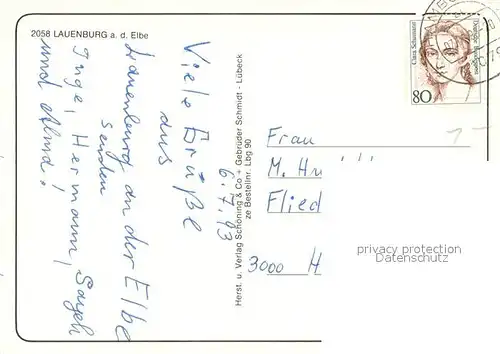 2058 LAUENBURG a. d. Elbe
Viele Grüße
aus
Lauenburg an der Elbe
senden
Inge, Hermann,
und
6.7.93
Herst. u. Verlag Schöning & Co + Gebrüder Schmidt - Lübeck
ze Bestellnr. Lbg 90
Clara Schumann
80
Frau
M.
Flied
3000 H
privacy protection
Datenschutz